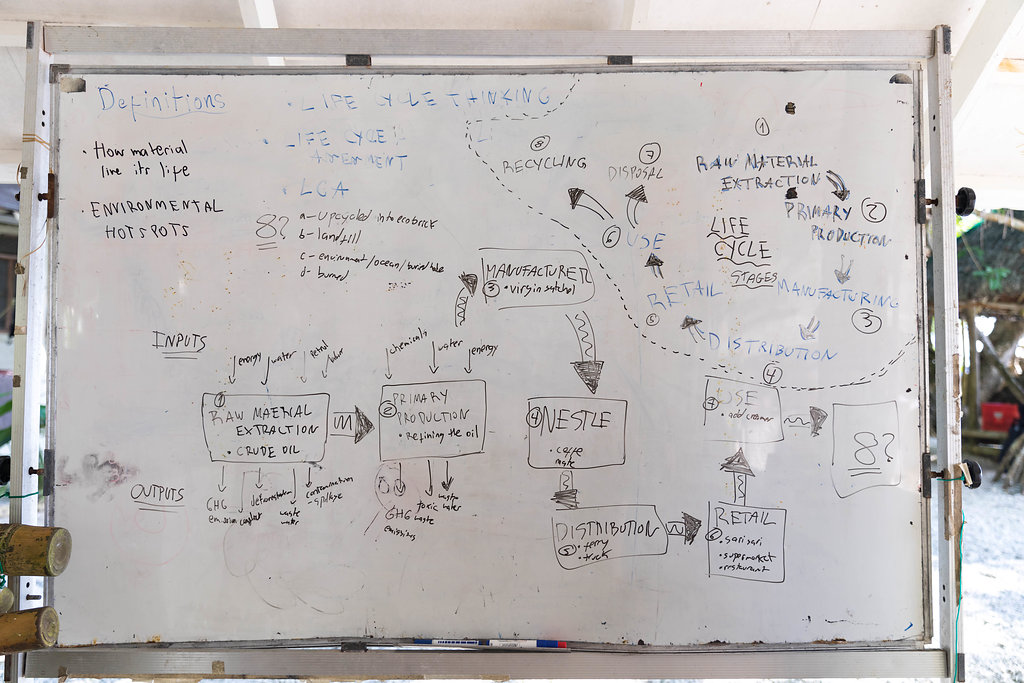 Definitions
• How material
live its life
• ENVIRONMENTAL
HOTSPOTS
• LIFE CYCLE THINKING
• LIFE CYCLE
• LCA
8?
a- Upcycled into ecobrick
b- landfill
c- environment/ocean/
d- burned
8
RECYCLING
7
DISPOSAL
1
RAW MATERIAL
EXTRACTION
PRIMARY 2
PRODUCTION
LIFE
CYCLE
STAGES
6 USE
RETAIL
5
MANUFACTURING
3
DISTRIBUTION
4
INPUTS
energy
water
chemicals
water
energy
1
RAW MATERIAL
EXTRACTION
• CRUDE OIL
2 PRIMARY
PRODUCTION
• Refining the oil
MANUFACTURER
3 • virgin satchel
4 NESTLE
• caffe
mate
DISTRIBUTION
5 • ferry
• truck
RETAIL
6 • sarisari
• supermarket
• restaurant
USE
7 • add creamer
8?
OUTPUTS
GHG
emission
conflict
deforestation
waste
water
contamination
- spillage
GHG
emissions
toxic
waste
waste
water